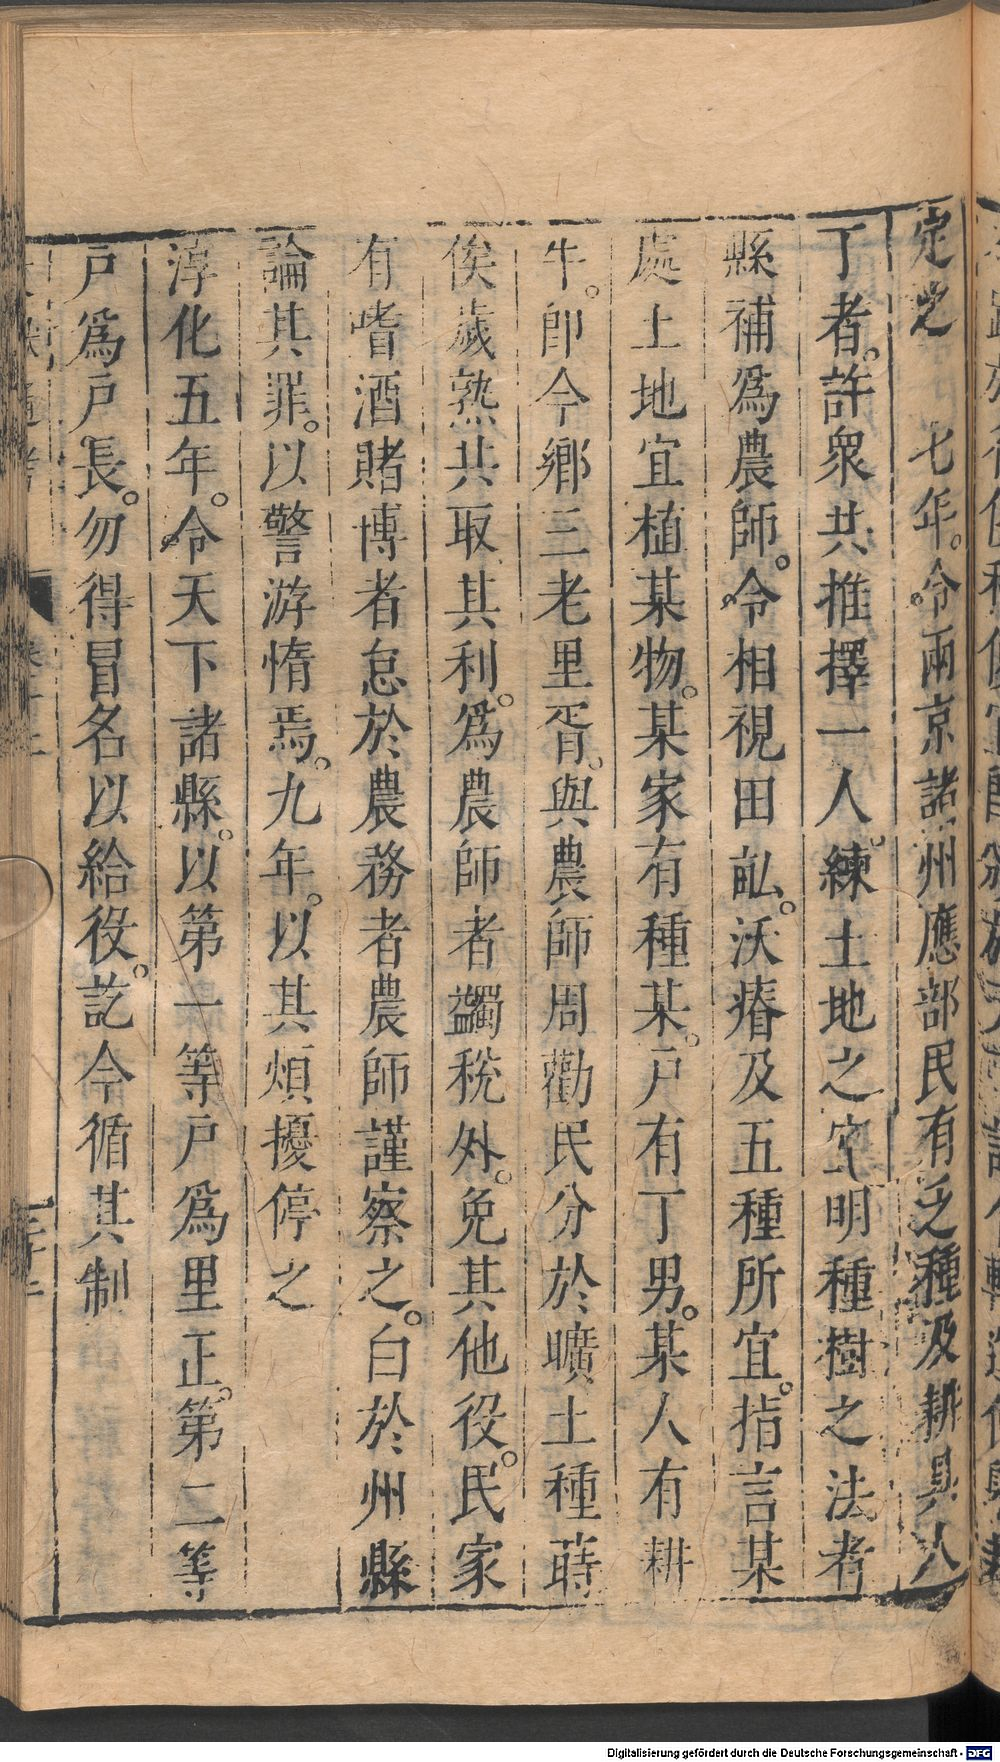 定之　七年。令兩京諸州應部民有乏種及耕具人
丁者。許衆共推擇一人。練土地之宜明種樹之法。者
縣補爲農師。令相視田畝。沃瘠及五種所宜。指言某
處土地宜植某物。某家有種某。戸有丁男。某人有耕
牛。卽令鄉三老里胥。與農師周勸民分於曠土種蒔
俟歲熟共取其利。爲農師者蠲稅外。免其他役。民家
有嗜酒賭博者怠於農務者農師謹察之。白於州縣
論其罪。以警游惰焉。九年。以其煩擾停之
淳化五年。令天下諸縣。以第一等戸爲里正。第二等
戸爲戸長。勿得冒名以給役。訖今循其制
Digitalisierung gefördert durch die Deutsche Forschungsgemeinschaft - DFG